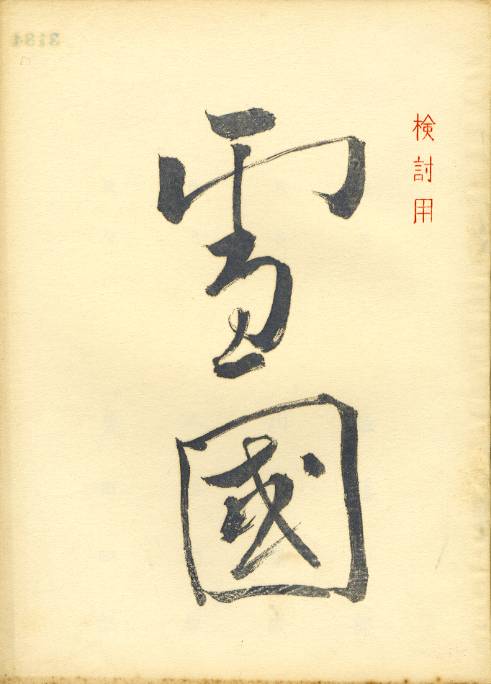 検討用
雪國